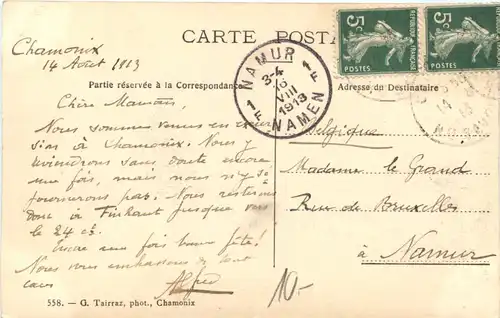 CARTE POSTA
Chamonix
14 Août 1913
Partie réservée à la Correspondance
Adresse du Destinataire
Chère Maman,
Nous sommes venus en excur
sion à Chamonix. Nous y
reviendrons sans doute encore
une fois, mais nous n'y sé
journerons pas. Nous resterons
donc à Finhaut jusque vers
le 24 ct.
Encore une fois bonne fête!
Nous vous embrassons de tout
cœur
Alfred
558. — G. Tairraz, phot., Chamonix
10.-
NAMUR
3-4
VIII
1913
NAMEN
5c
POSTES
5c
POSTES
Belgique
Madame le Grand
Rue de Bruxelles
à Namur